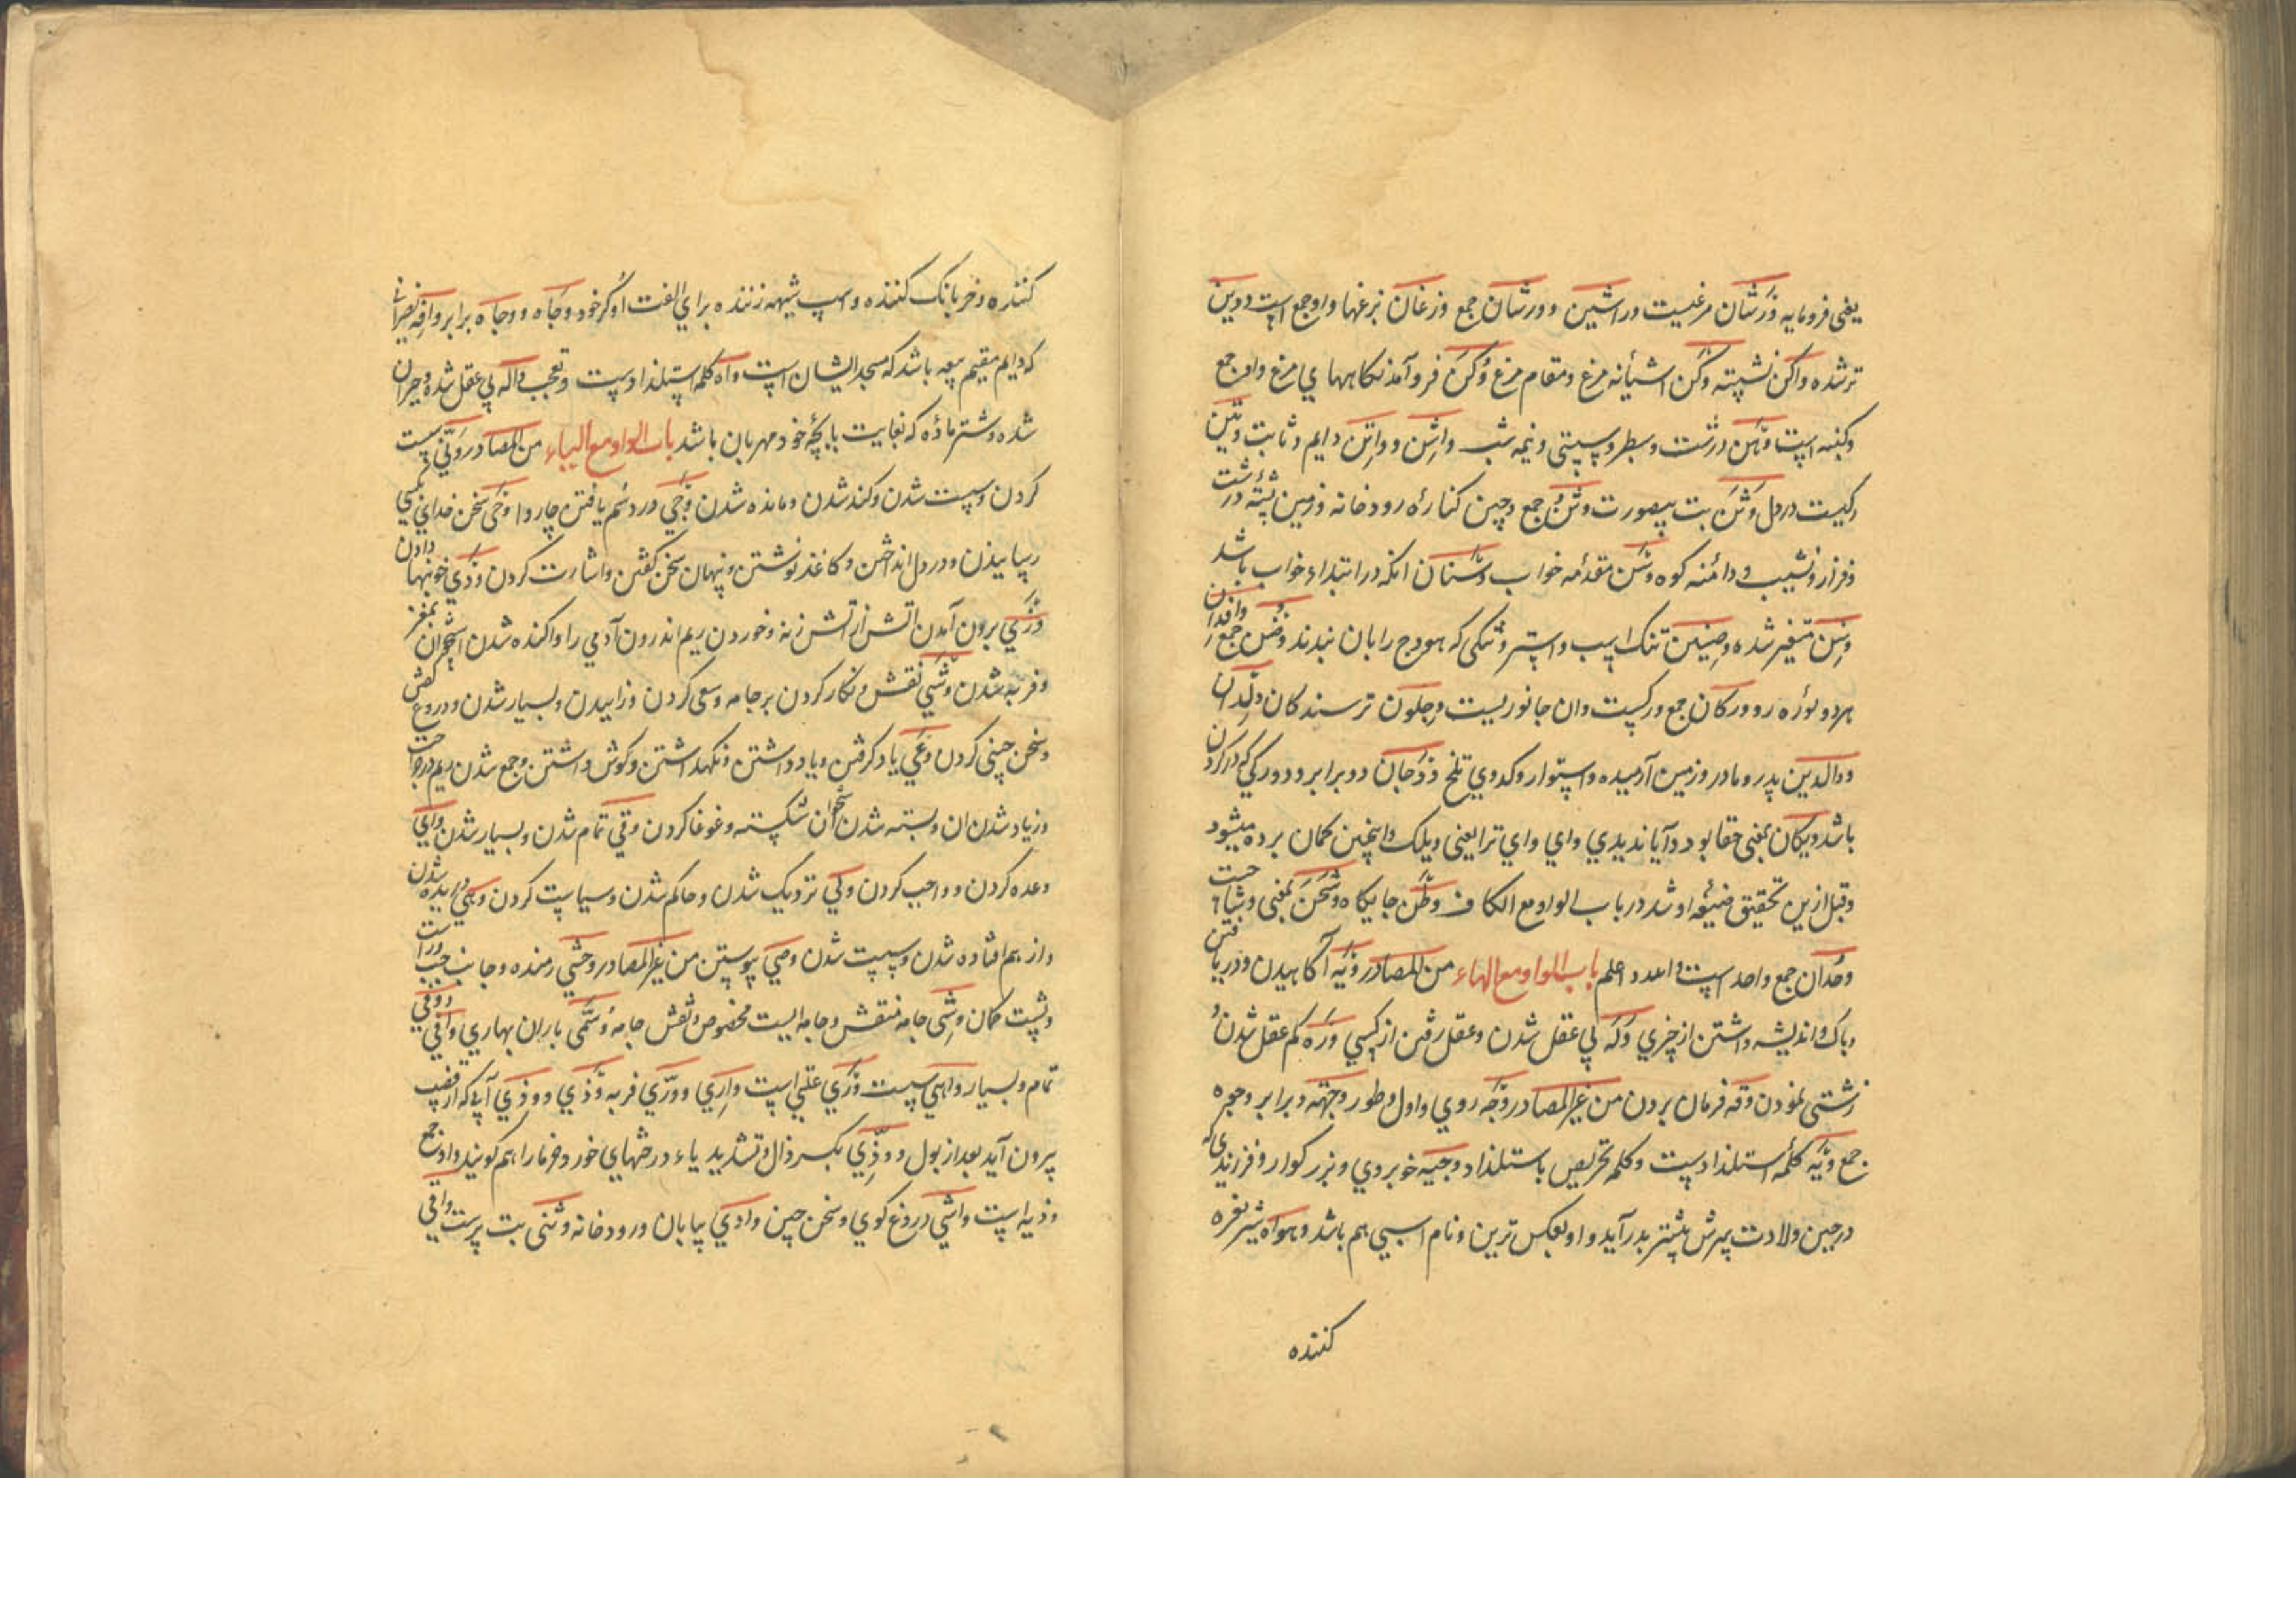 یعنی فرومایه وَرَشان مرغیست وراشین و ورشان جمع وزغان بزغها واو جمع است ودین
تر شده واکن نشسته وَکن اشیانه مرغ ومقام مرغ وُکن فرو آمدنکاههای مرغ واو جمع
وکنه است وَهن درشت وسطر وسستی ونیمه شب واثِن و واتِن دایم وثابت وتین
رکیست در دل وَثَن بت بیصورت وثن جمع وجین کناره رودخانه وزمین پشته درشت
وفراز ونشیب ودامنه کوه وسَن مقدمه خواب وسنان انکه در ابتداء خواب باشد
وسن متغیر شده وضین تنک اسپ واستر وتنکی که هودج را بان بندند وضن جمع
هر دو نوره رو وورکان جمع ورکست وان جانوریست وجلون ترسندکان ولدان
ووالدین پدر ومادر وزمین آرمیده واستوار وکدوی تلخ وَدَجان دو برابر ودو رکی که در کردن
باشد ویکان بمعنی حقا بود وآیا ندیدی وای وای ترا یعنی ویلک واینچنین کمان برده میشود
وقبل ازین تحقیق صیغه او شد در باب الواو مع الکاف وطن جایکاه وشحن بمعنی
وحدان جمع واحد است واعد واعلم باب الواو مع الهاء من المصادر وَبَه آکاهیدن ودریافتن
وباک واندیشه داشتن از چیزی وَلَه بی عقل شدن وعقل رفتن از کسی وَرَه کم عقل شدن و
زشتی نمودن وقه فرمان بردن من غیر المصادر وَجه روی واول وطور وجهة وبرابر وجوه
جمع ویه کلمه استلذاذست وکلمه تحریص با استلذاد وجیه خوبروی وبزرکوار وفرزندی که
در حین ولادت پسرش پیشتر بدر آید و او بعکس تن ونام اسبی هم باشد وهواه شیر نعره
کننده
کننده وخر بانک کننده واسپ شیهه زننده برای الفت او کر خود وجاه ووجاه برابر وافِه نصرانی
که دایم مقیم بیعه باشد که مسجد ایشان است واه کلمه استلذاذست وتعجب واله بی عقل شده وحیران
شده وشتر ماده که بغایت با بچه خود مهربان باشد باب الواو مع الیاء من المصادر ونی سست
کردن وسست شدن وکند شدن ومانده شدن وَجی درد سم یافتن چاروا وَحی سخن خدای بکسی
رسانیدن ودر دل انداختن وکاغذ نوشتن وپنهان سخن کفتن واشارت کردن ودی خونبها دادن
وَری برون آمدن آتش از آتش زنه وخوردن ریم اندرون آدمی را واکنده شدن استخوان بمغز
وفربه شدن وَشی نقش ونکار کردن بر جامه وسعی کردن وزاییدن وبسیار شدن ودروغ کفتن
وسخن چینی کردن وعی یاد کرفتن ویاد داشتن ونکهداشتن وکوش داشتن وجمع شدن ریم در جراحت
وزیاد شدن ان وبسته شدن استخوان شکسته وغوغا کردن وفی تمام شدن وبسیار شدن وای
وعده کردن و واجب کردن ولی نزدیک شدن وحاکم شدن وسیاست کردن وهی دریده شدن
واز هم افتاده شدن وسست شدن وصی پیوستن من غیر المصادر وحشی رمنده وجانب راست
وپشت کمان وشی جامه منقش وجامه ایست مخصوص ونقش جامه وسمی باران بهاری وافی ووفی
تمام وبسیار واهی سست وَری علتی است واری ووری فربه وَذی وودی آبی که از قضیب
بیرون آید بعد از بول و وذی بکسر ذال وتشدید یاء درختهای خورد خرما را هم کویند واو جمع
وذیه است واشی دروغ کوی وسخن چین وادی بیابان ورودخانه وثنی بت پرست واقی